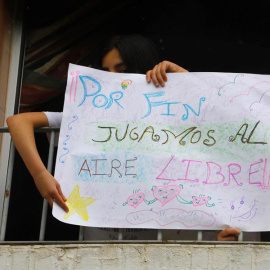 POR FIN
JUGAMOS AL
AIRE LIBRE!!